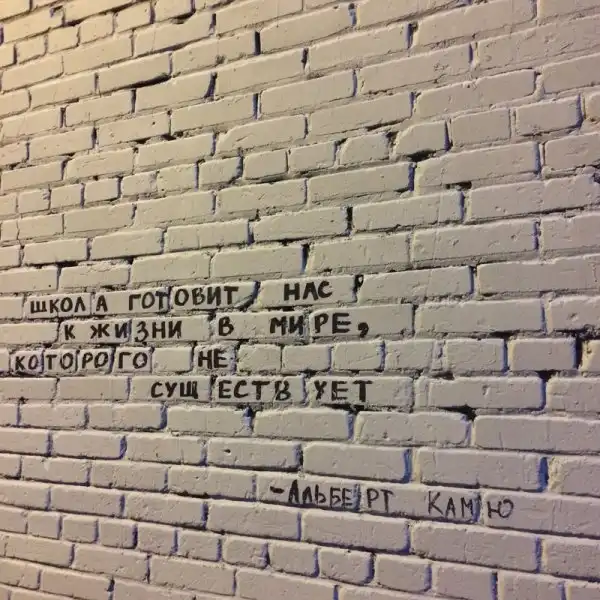 ШКОЛА ГОТОВИТ НАС
К ЖИЗНИ В МИРЕ,
КОТОРОГО НЕ
СУЩЕСТВУЕТ
-АЛЬБЕРТ КАМЮ